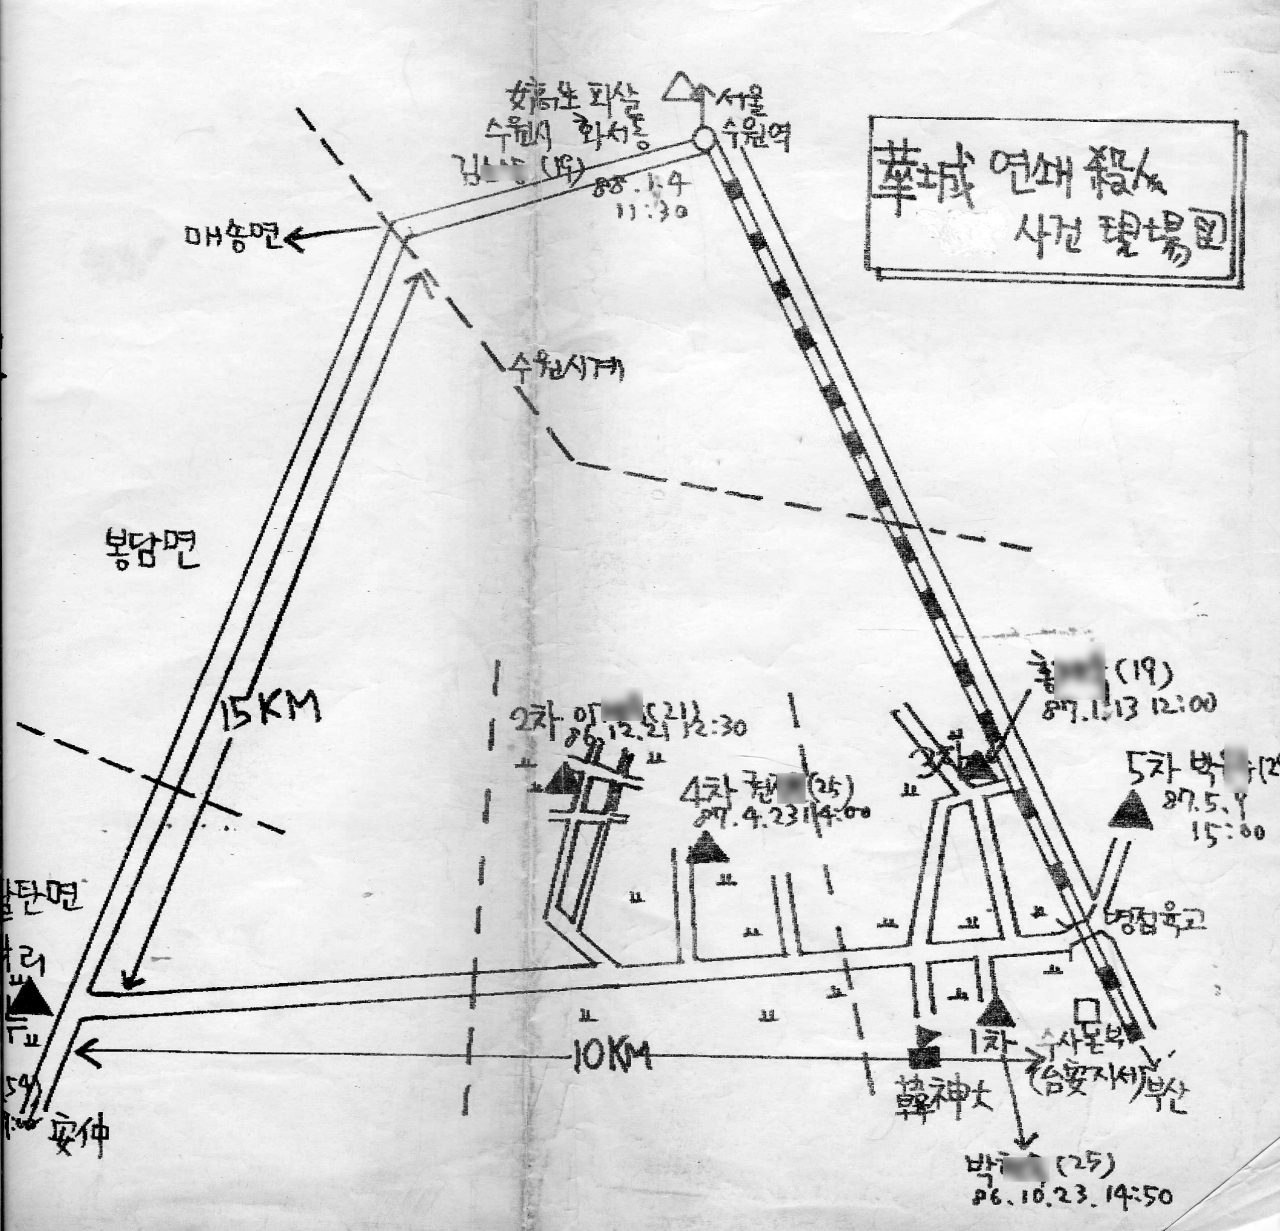 女高生 피살
수원시 화서동
김 (19)
88.1.4
11:30
서울
수원역
華城 연쇄 殺人
사건 現場図
매송면
수원시계
봉담면
15KM
2차 이 (21)
86.12.21 12:30
4차 권 (25)
87.4.23 14:00
홍 (19)
87.1.13 12:00
3차
5차 박
87.5.
15:00
병점육교
탄면
리
10KM
1차
수사본부
(台安지서)
부산
韓神大
安仲
박 (25)
86.10.23.14:50